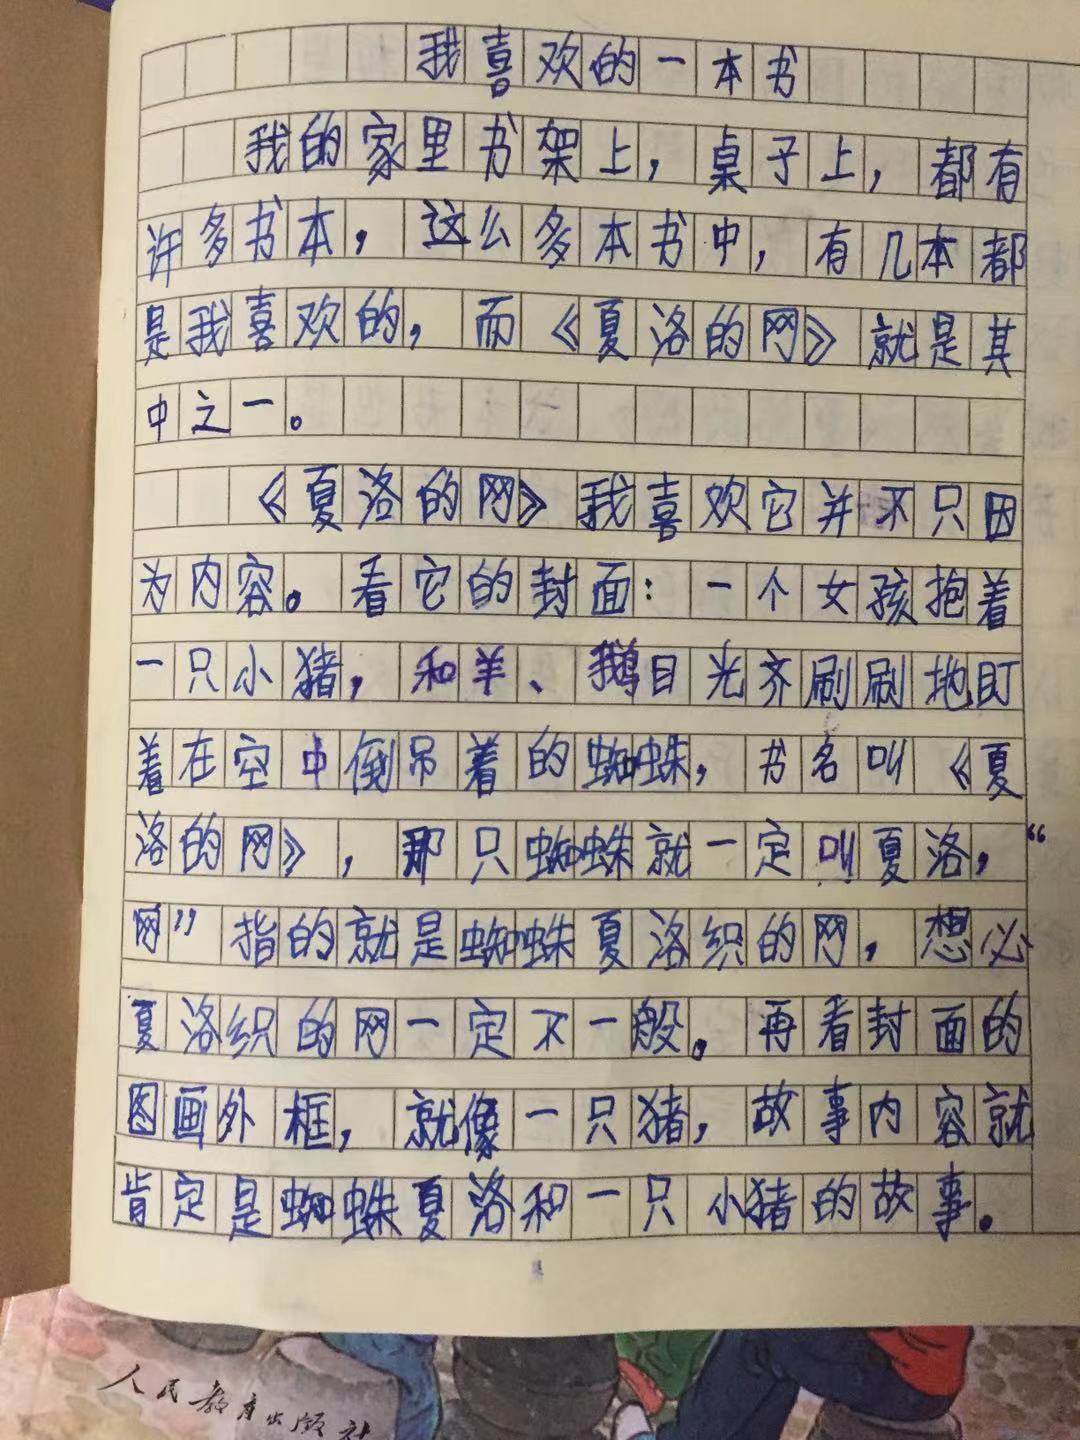 我喜欢的一本书
我的家里书架上，桌子上，都有
许多书本，这么多本书中，有几本都
是我喜欢的，而《夏洛的网》就是其
中之一。
《夏洛的网》我喜欢它并不只因
为内容。看它的封面：一个女孩抱着
一只小猪，和羊、鹅目光齐刷刷地盯
着在空中倒吊着的蜘蛛，书名叫《夏
洛的网》，那只蜘蛛就一定叫夏洛，“
网”指的就是蜘蛛夏洛织的网，想必
夏洛织的网一定不一般。再看封面的
图画外框，就像一只猪，故事内容就
肯定是蜘蛛夏洛和一只小猪的故事。
人民教育出版社